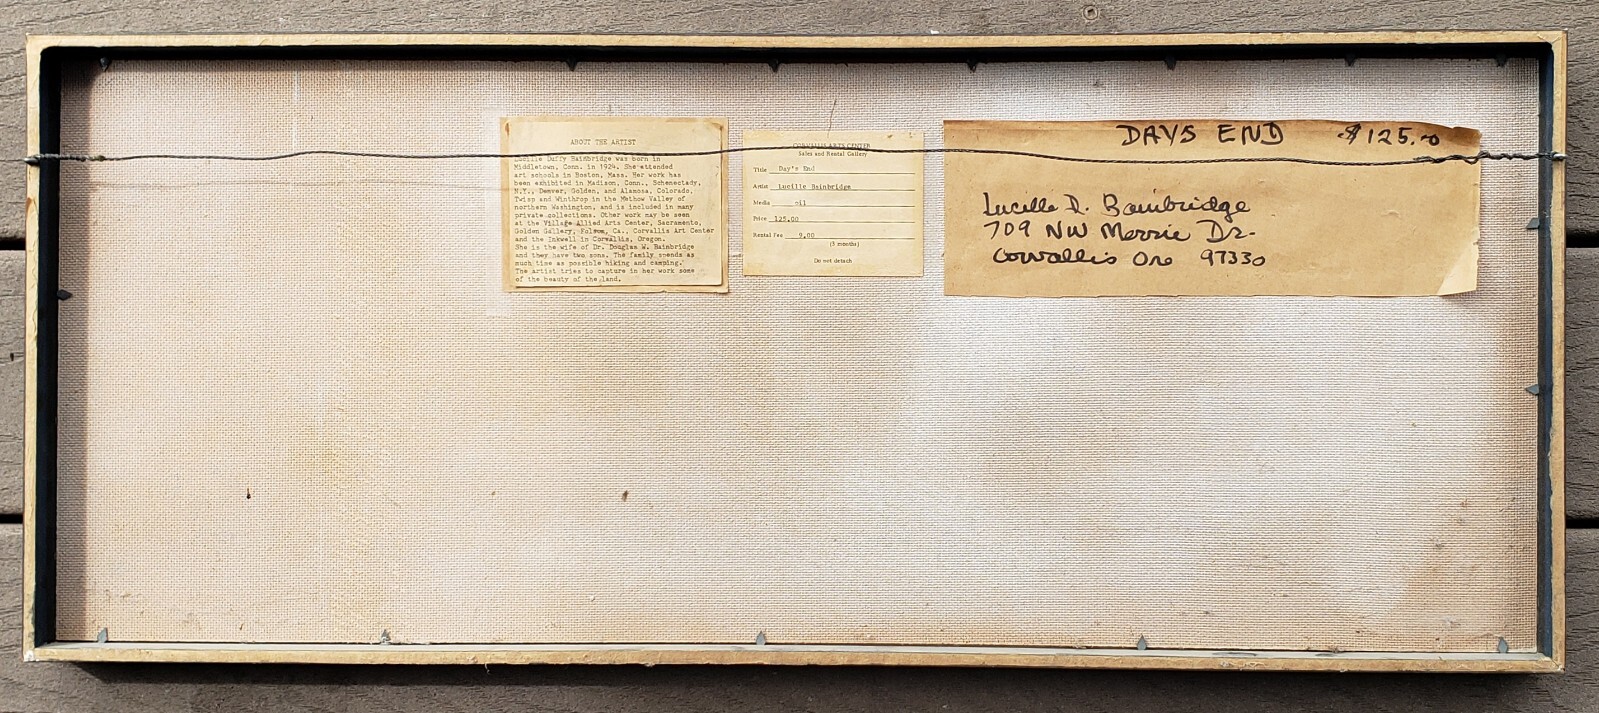 ABOUT THE ARTIST
Lucille Duffy Bainbridge was born in
Middletown, Conn. in 1924. She attended
art schools in Boston, Mass. Her work has
been exhibited in Madison, Conn., Schenectady,
N.Y., Denver, Golden, and Alamosa, Colorado,
Twisp and Winthrop in the Methow Valley of
northern Washington, and is included in many
private collections. Other work may be seen
at the Village Allied Arts Center, Sacramento,
Golden Gallery, Folsom, Ca., Corvallis Art Center
and the Inkwell in Corvallis, Oregon.
She is the wife of Dr. Douglas W. Bainbridge
and they have two sons. The family spends as
much time as possible hiking and camping.
The artist tries to capture in her work some
of the beauty of the land.
CORVALLIS ARTS CENTER
Sales and Rental Gallery
Title Day's End
Artist Lucille Bainbridge
Media oil
Price 125.00
Rental Fee 9.00
(3 months)
Do not detach
DAYS END $125.00
Lucille D. Bainbridge
709 NW Merrie Dr.
Corvallis Ore 97330